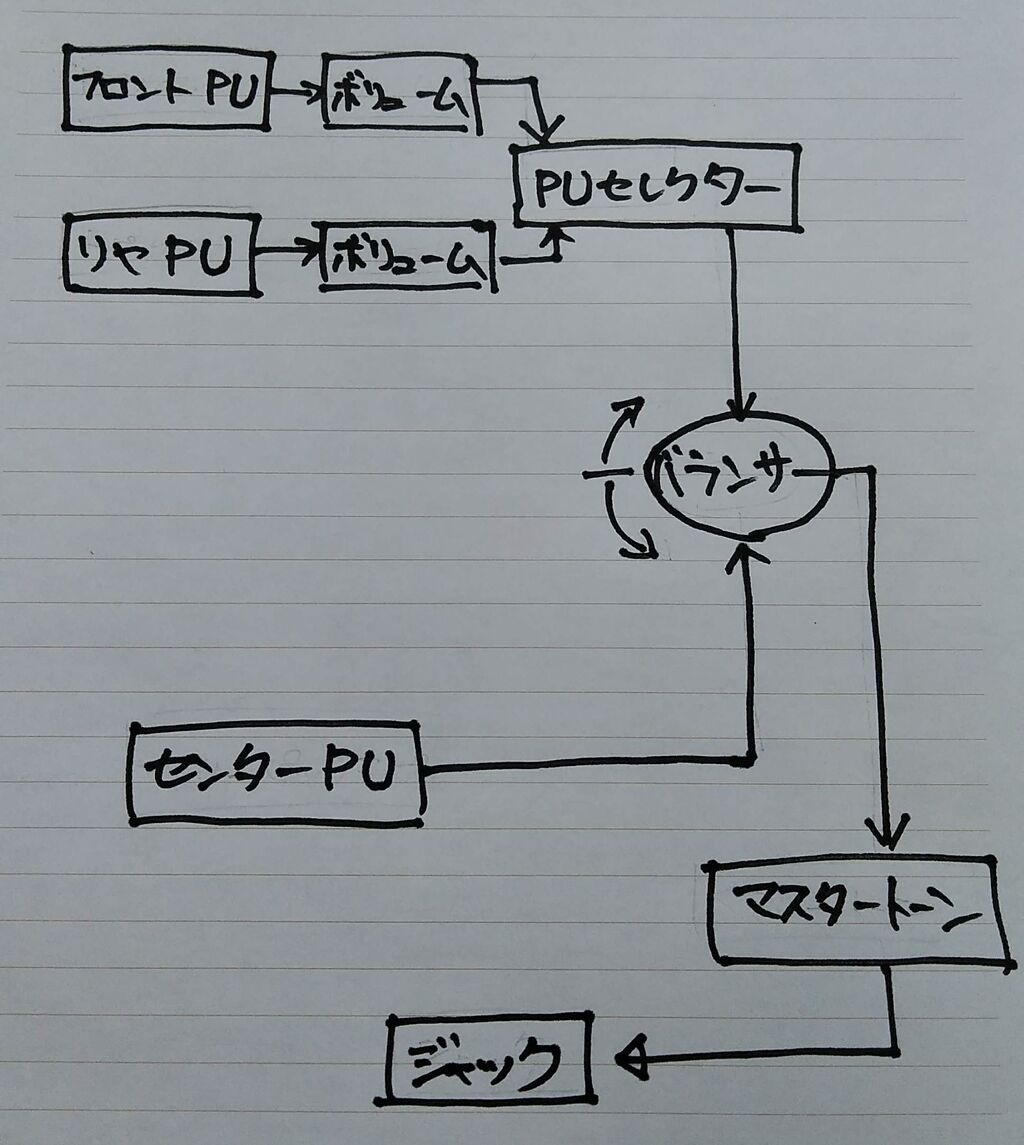 フロントPU
ボリューム
PUセレクター
リヤPU
ボリューム
バランサー
センターPU
マスタートーン
ジャック